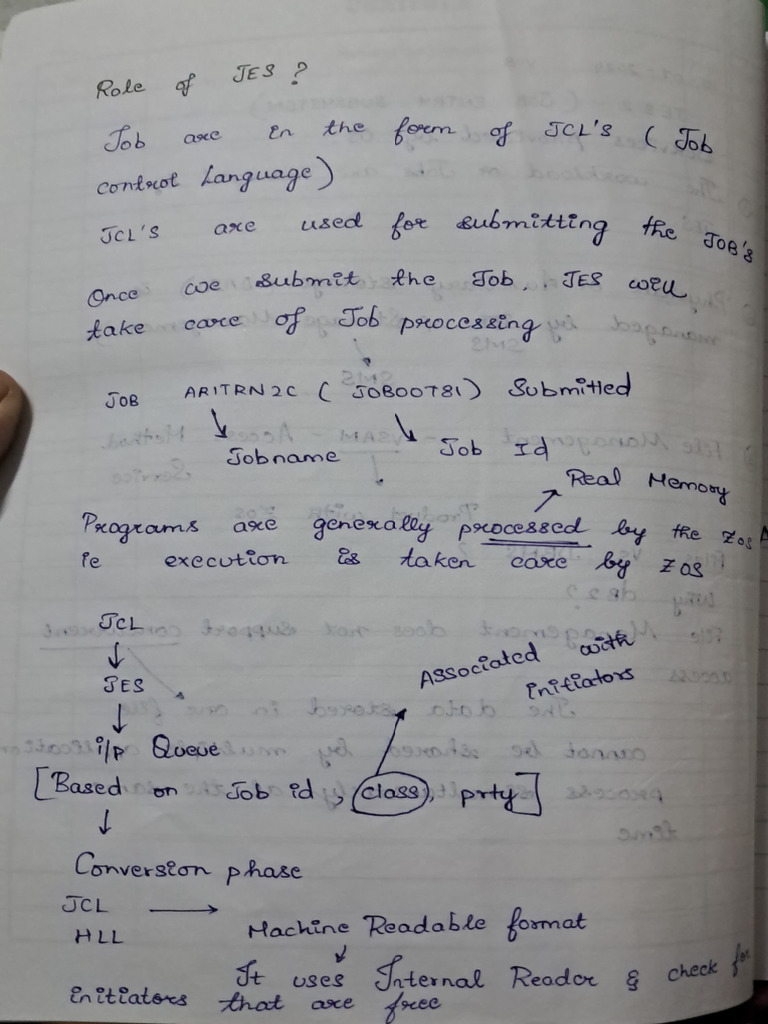 Role of JES ?
Job are in the form of JCL'S ( Job
control Language)
JCL'S are used for submitting the JOB'S
Once we submit the Job, JES will
take care of Job processing
JOB ARITRN2C ( JOB00781) Submitted
Jobname Job Id
Real Memory
Programs are generally processed by the ZOS
ie execution is taken care by ZOS
JCL
JES
Associated with
initiators
i/p Queue
[Based on Job id, class, prty]
Conversion phase
JCL
HLL Machine Readable format
It uses Internal Reader & check for
initiators that are free